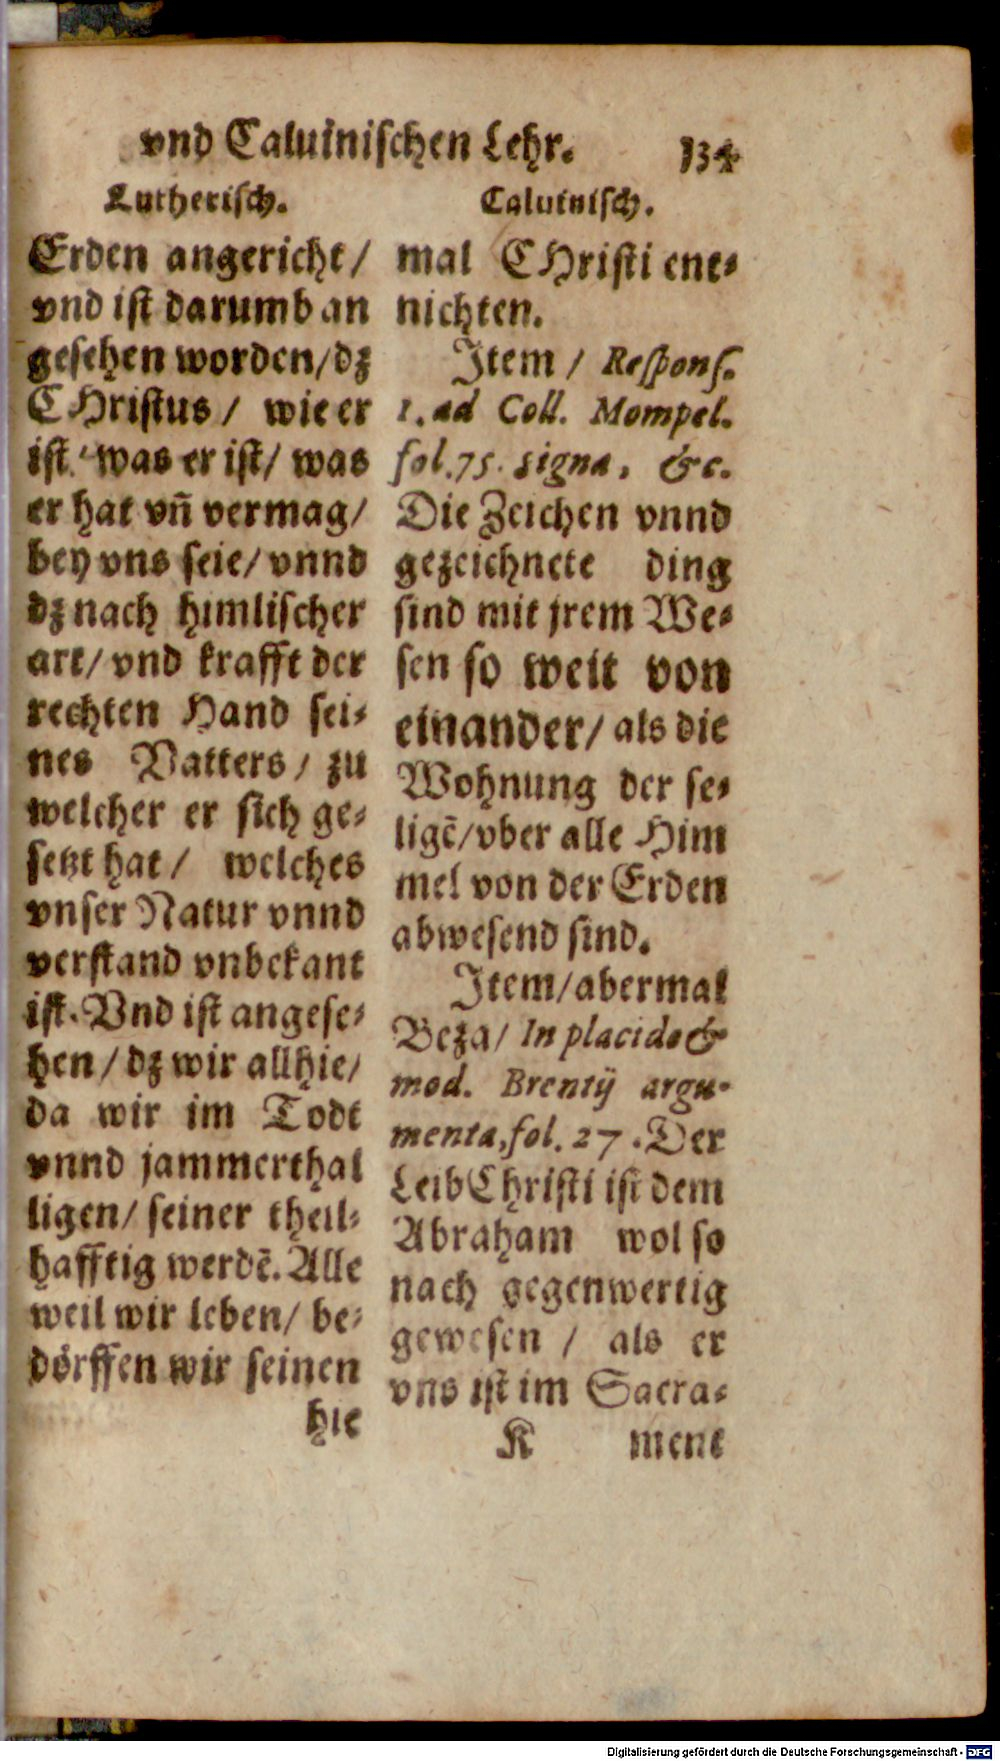 vnd Caluinischen Lehr. 134
Lutherisch.
Erden angericht/
vnd ist darumb an
gesehen worden/dz
CHristus/ wie er
ist/ was er ist/ was
er hat vn̄ vermag/
bey vns seie/vnnd
dz nach himlischer
art/vnd krafft der
rechten Hand sei-
nes Vatters/ zu
welcher er sich ge-
setzt hat/ welches
vnser Natur vnnd
verstand vnbekant
ist. Vnd ist angese-
hen/dz wir allhie/
da wir im Todt
vnnd jammerthal
ligen/seiner theil-
hafftig werdē. Alle
weil wir leben/be-
dörffen wir seinen
hie
Caluinisch.
mal CHristi ent-
nichten.
Item/ Respons.
1. ad Coll. Mompel.
fol.75. signa, &c.
Die Zeichen vnnd
gezeichnete ding
sind mit jrem We-
sen so weit von
einander/als die
Wohnung der se-
ligē/vber alle Him
mel von der Erden
abwesend sind.
Item/abermal
Beza/ In placido &
mod. Brentij argu-
menta,fol. 27. Der
Leib Christi ist dem
Abraham wol so
nach gegenwertig
gewesen/ als er
vns ist im Sacra-
K ment
Digitalisierung gefördert durch die Deutsche Forschungsgemeinschaft - DFG